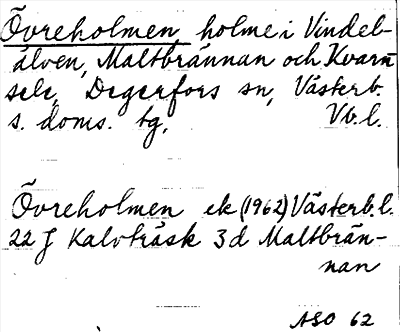 Övreholmen, holme i Vindel-
älven, Maltbrännan och Kvarn-
sele, Degerfors sn, Västerb.
s. doms. tg, Vb. l.
Övreholmen ek (1962) Västerb. l.
22 J Kalvträsk 3 d Maltbrän-
nan
ASO 62